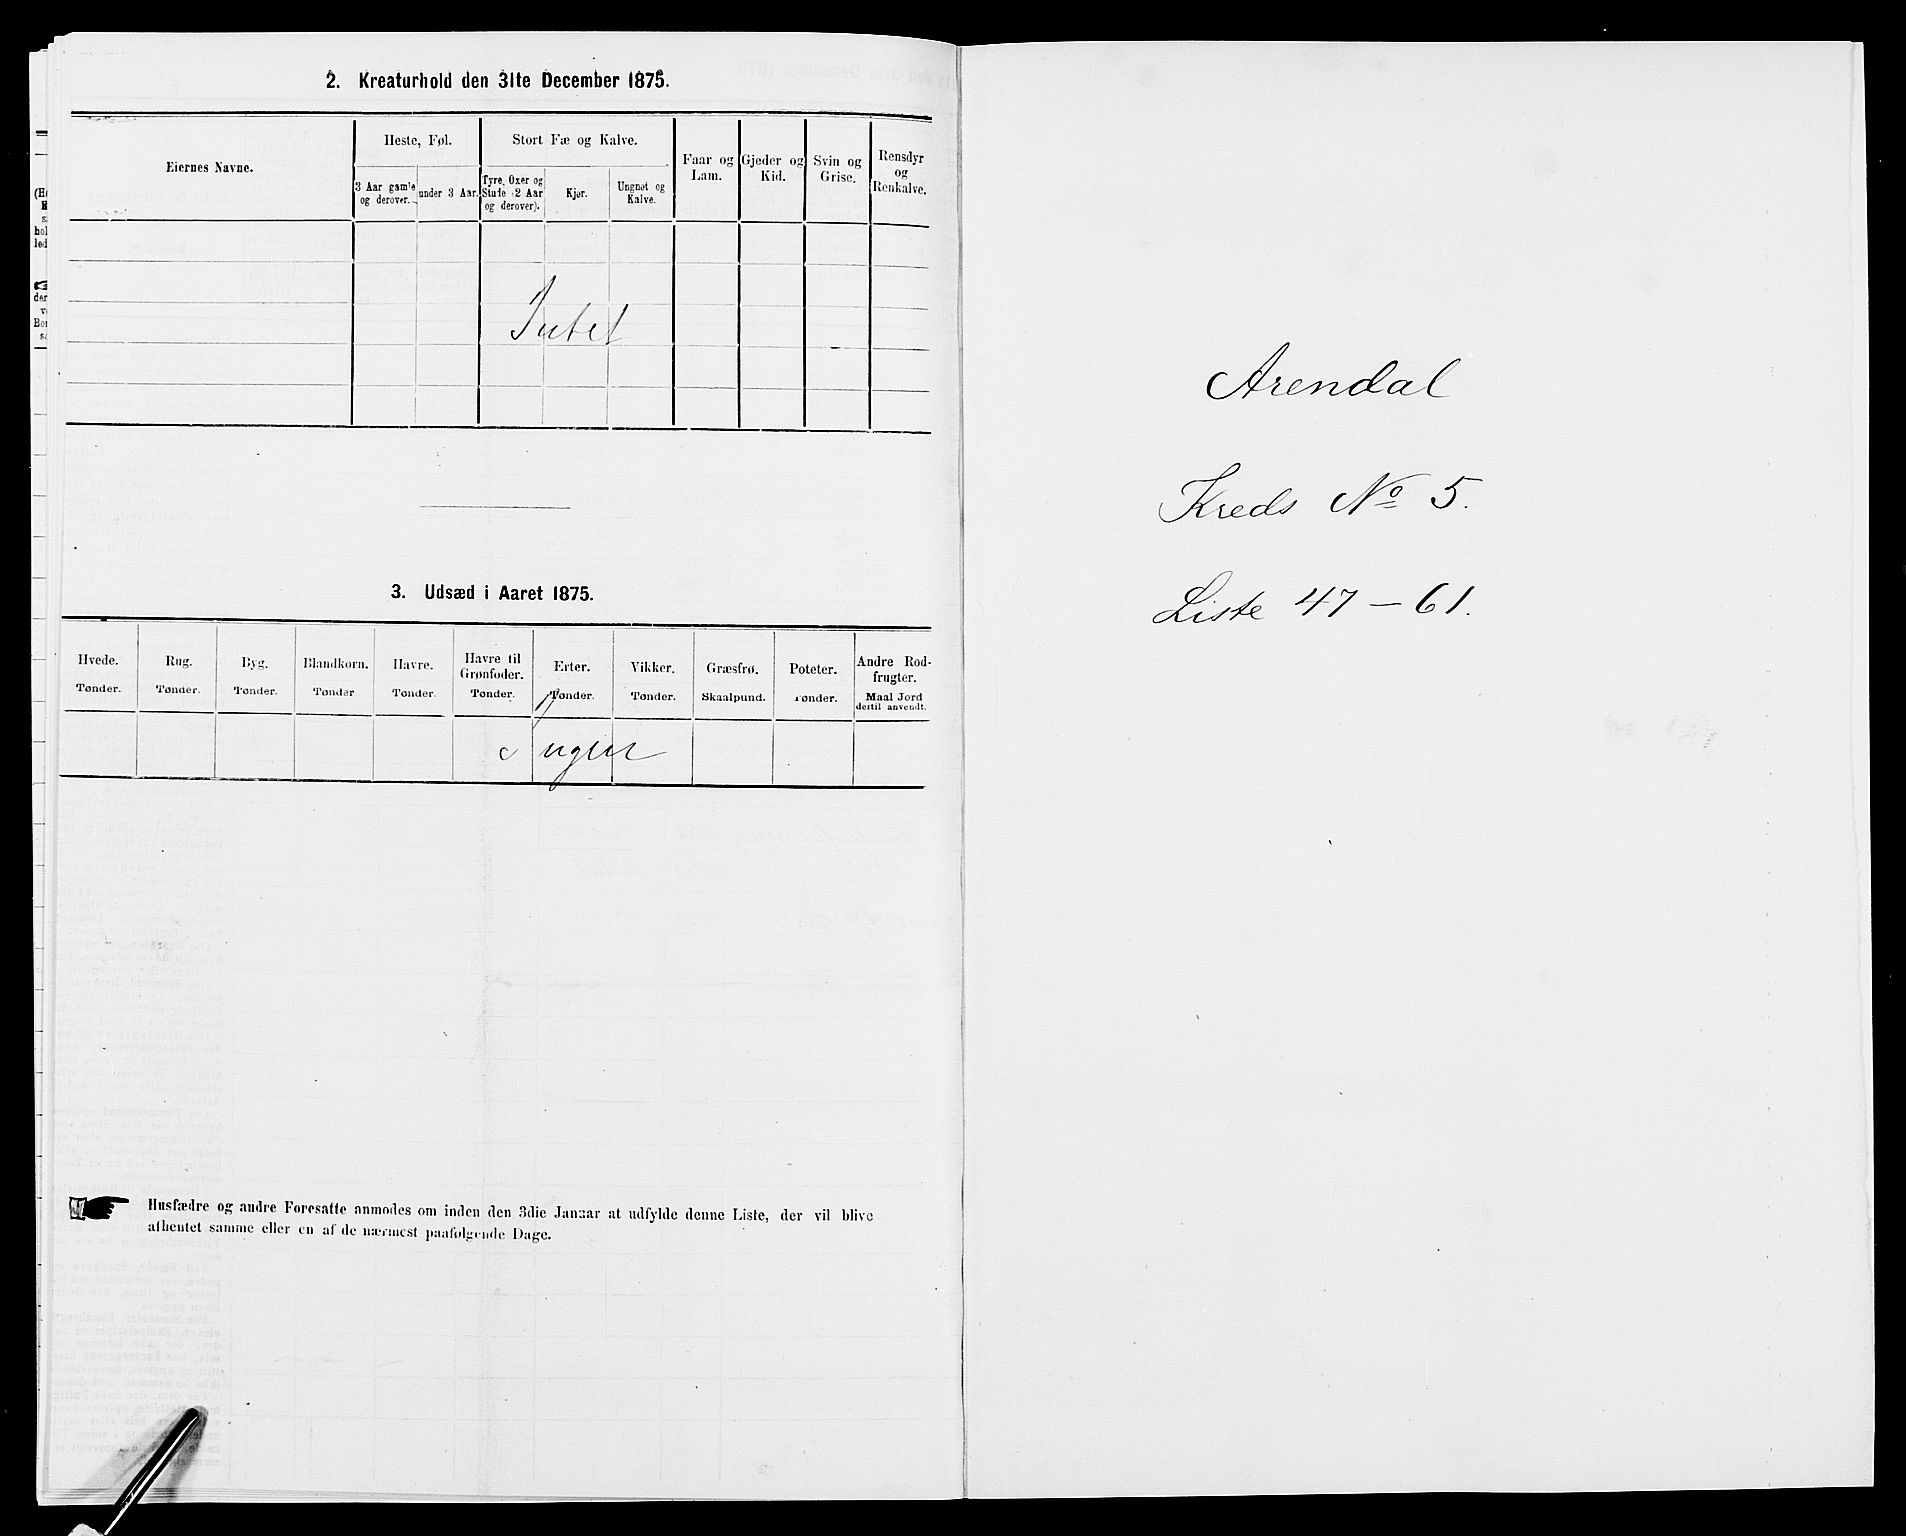 2. Kreaturhold den 31te December 1875.
Eiernes Navne.
Heste, Føl.
3 Aar gamle og derover.
under 3 Aar.
Stort Fæ og Kalve.
Tyre, Oxer og Stude (2 Aar og derover).
Kjør.
Ungnøt og Kalve.
Faar og Lam.
Gjeder og Kid.
Svin og Grise.
Rensdyr og Renkalve.
Intet
3. Udsæd i Aaret 1875.
Hvede. Tønder.
Rug. Tønder.
Byg. Tønder.
Blandkorn. Tønder
Havre. Tønder.
Havre til Grønfoder. Tønder.
Erter. Tønder.
Vikker. Tønder.
Græsfrø. Skaalpund.
Poteter. Tønder.
Andre Rodfrugter. Maal Jord dertil anvendt.
Ingen
Husfædre og andre Foresatte anmodes om inden den 3die Januar at udfylde denne Liste, der vil blive
afhentet samme eller en af de nærmest paafølgende Dage.
Arendal
Kreds No 5.
Liste 47 – 61.